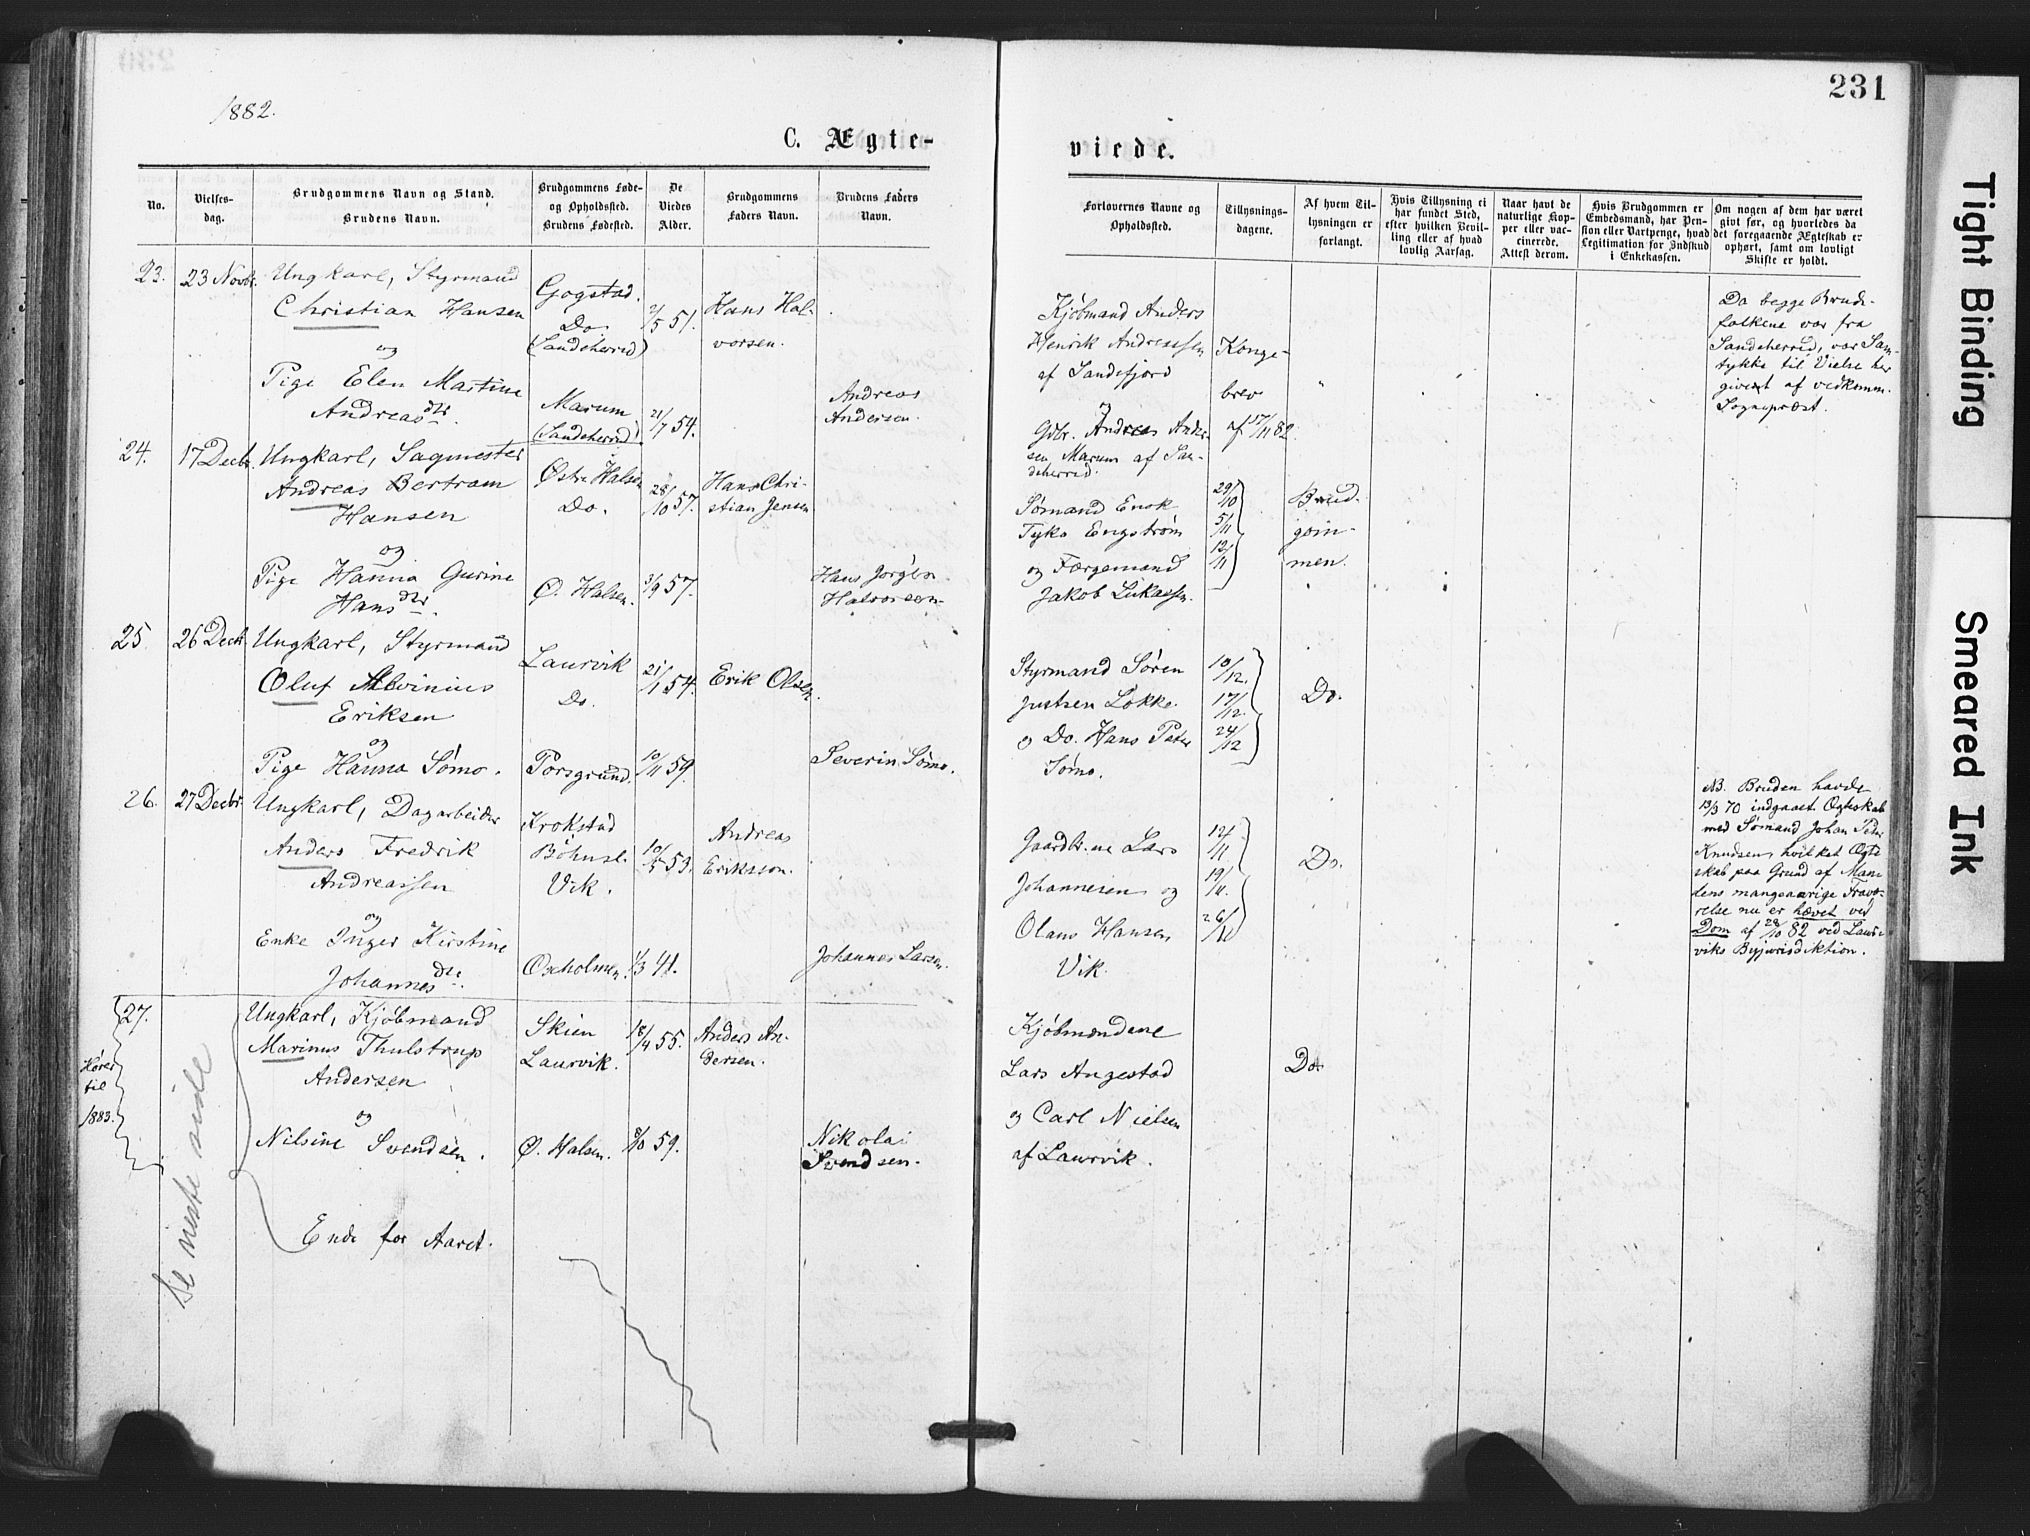 231
1882.
C. Ægte-
viede.
No.
Vielses-
dag.
Brudgommens Navn og Stand.
Brudens Navn.
Brudgommens Føde-
og Opholdssted.
Brudens Fødested.
De
Viedes
Alder.
Brudgommens
Faders Navn.
Brudens Faders
Navn.
Forlovernes Navne og
Opholdssted.
Tillysnings-
dagene.
Af hvem Til-
lysningen er
forlangt.
Hvis Tillysning ei
har fundet Sted,
efter hvilken Bevil-
ling eller af hvad
lovlig Aarsag.
Naar havt de
naturlige Kop-
per eller vac-
cinerede.
Attest derom.
Hvis Brudgommen er
Embedsmand, har Pen-
sion eller Vartpenge, hvad
Legitimation for Indskud
i Enkekassen.
Om nogen af dem har været
gift før, og hvorledes da
det foregaaende Ægteskab er
ophørt, samt om lovligt
Skifte er holdt.
23.
23 Novbr.
Ungkarl, Styrmand
Christian Hansen
og
Pige Elen Martine
Andreasdtr.
Gogstad.
Do.
(Sandeherred)
Marum
(Sandeherred)
2/5 51.
21/7 54.
Hans Hal-
vorsen.
Andreas
Andersen.
Kjøbmand Anders
Henrik Andreassen
af Sandefjord
og
Gdbr. Andreas Ander-
sen Marum af San-
deherred.
Konge-
brev
af 17/11 82.
"
Da begge Brude-
folkene var fra
Sandeherred, var Sam-
tykke til Vielse her
givet af vedkomm.
Sognepræst.
24.
17 Decbr.
Ungkarl, Sagmester
Andreas Bertram
Hansen
og
Pige Hanna Gurine
Hansdtr.
Østre Halsen
Do.
Ø. Halsen.
28/10 57.
3/9 57.
Hans Chri-
stian Jensen
Hans Jørgen
Halvorsen.
Sømand Enok
Tyko Engstrøm
og Færgemand
Jakob Lukassen.
29/10
5/11
12/11
Brud-
gom-
men.
25.
26 Decbr.
Ungkarl, Styrmand
Oluf Alvinius
Eriksen
og
Pige Hanna Sømo.
Laurvik
Do.
Porsgrund.
21/1 54.
10/11 59.
Erik Olsen.
Severin Sømo.
Styrmand Søren
Justsen Løkke
og Do. Hans Peter
Sømo.
10/12.
17/12.
24/12
Do.
26.
27 Decbr.
Ungkarl, Dagarbeider
Anders Fredrik
Andreassen
og
Enke Inger Kirstine
Johannesdtr.
Krokstad
Bohusl.
Vik.
Oxholmen.
10/5 53.
1/3 41.
Andreas
Eriksson.
Johannes Larsen.
Gaardbr.ne Lars
Johannesen og
Olaus Hansen
Vik.
12/11
19/11.
26/11
Do.
NB. Bruden havde
13/3 70 indgaaet Ægteskab
med Sømand Johan Peder
Knudsen, hvilket Ægte-
skab paa Grund af Man-
dens mangeaarige Fravæ-
relse nu er hævet ved
Dom af 28/10 82 ved Laur-
viks Byjurisdiktion.
27.
Hører
til
1883.
Se neste side
Ungkarl, Kjøbmand
Marinus Thulstrup
Andersen
og
Nilsine Svendsen.
Skien
Laurvik.
Ø. Halsen.
18/4 55.
8/10 59.
Anders An-
dersen.
Nikolai
Svendsen.
Kjøbmændene
Lars Angestad
og Carl Nielsen
af Laurvik.
Do.
Ende for Aaret.
Tight Binding
Smeared Ink